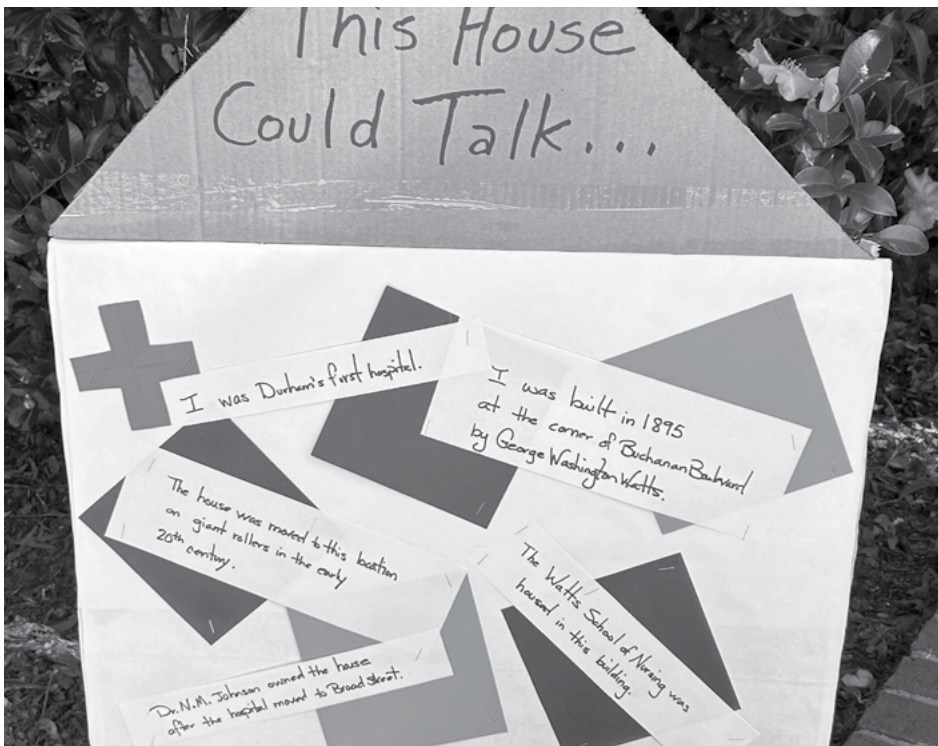 This House
Could Talk...
I was Durham's first hospital.
I was built in 1895
at the corner of Buchanan Boulevard
by George Washington Watts.
The house was moved to this location
on giant rollers in the early
20th century.
The Watts School of Nursing was
housed in this building.
Dr. N.M. Johnson owned the house
after the hospital moved to Broad street.